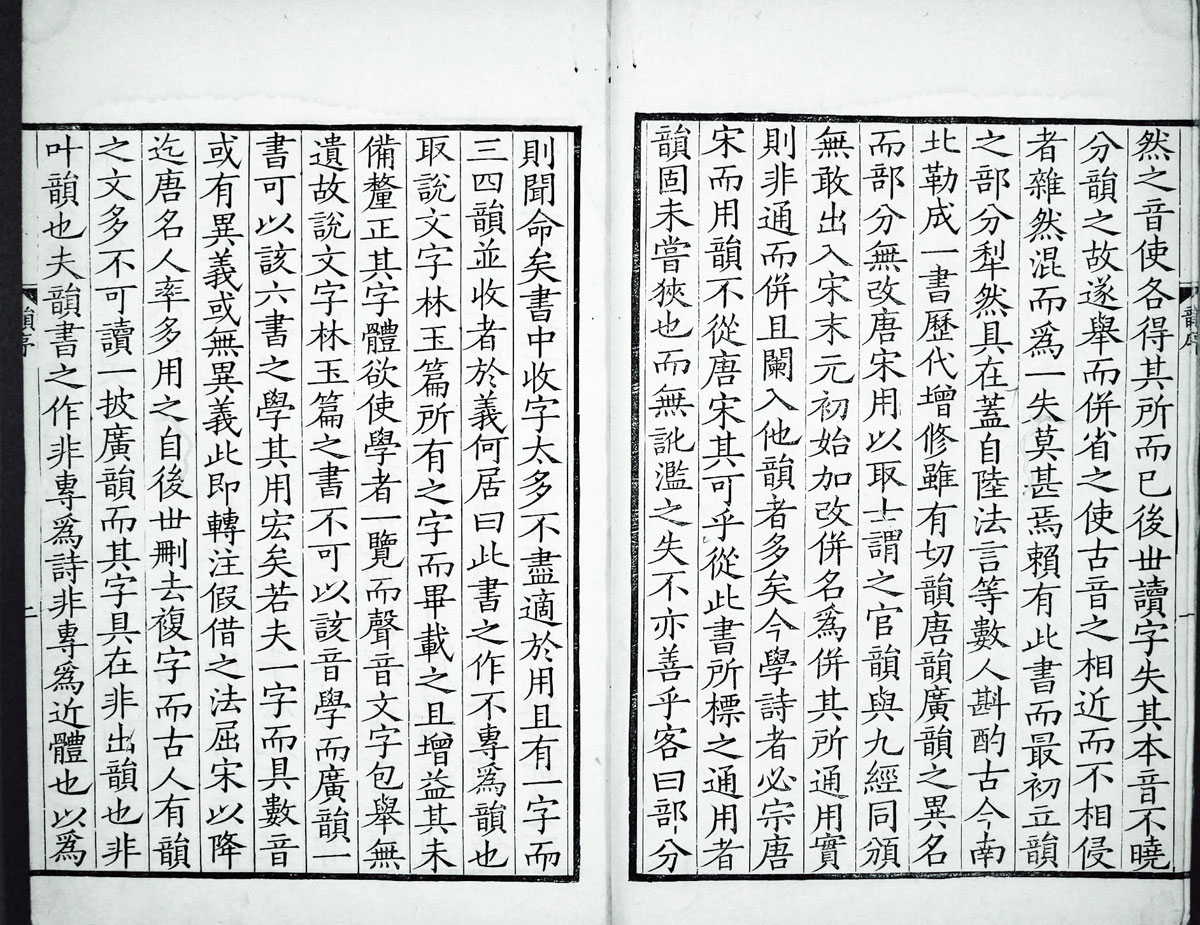 然之音使各得其所而已後世讀字失其本音不曉
分韻之故遂舉而併省之使古音之相近而不相侵
者雜然混而爲一失莫甚焉賴有此書而最初立韻
之部分犁然具在蓋自陸法言等數人斟酌古今南
北勒成一書歷代增修雖有切韻唐韻廣韻之異名
而部分無改唐宋用以取士謂之官韻與九經同頒
無敢出入宋末元初始加改併名爲併其所通用實
則非通而併且闌入他韻者多矣今學詩者必宗唐
宋而用韻不從唐宋其可乎從此書所標之通用者
韻固未嘗狹也而無訛濫之失不亦善乎客曰部分
則聞命矣書中收字太多不盡適於用且有一字而
三四韻並收者於義何居曰此書之作不專爲韻也
取說文字林玉篇所有之字而畢載之且增益其未
備釐正其字體欲使學者一覽而聲音文字包舉無
遺故說文字林玉篇之書不可以該音學而廣韻一
書可以該六書之學其用宏矣若夫一字而具數音
或有異義或無異義此即轉注假借之法屈宋以降
迄唐名人率多用之自後世刪去複字而古人有韻
之文多不可讀一披廣韻而其字具在非出韻也非
叶韻也夫韻書之作非專爲詩非專爲近體也以爲
韻序
二